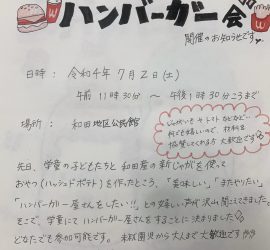 ハンバーガー会
開催のお知らせです。
日時： 令和4年7月2日(土)
午前11時30分 〜 午後1時30分ころまで
場所： 和田地区公民館
じゃがいもやトマトなどなど…
何でも嬉しいので、材料を
協賛してくれる方 大歓迎です
先日、学童の子どもたちと和田産の新じゃがを使って
おやつ(ハッシュドポテト)を作ったところ、「美味しい」、「またやりたい」
「ハンバーガー屋さんをしたい!!」との嬉しい声が沢山聞こえてきました。
そこで、学童にてハンバーガー屋さんをすることに決まりました
どなたでも参加可能です。未就園児から大人まで大歓迎です